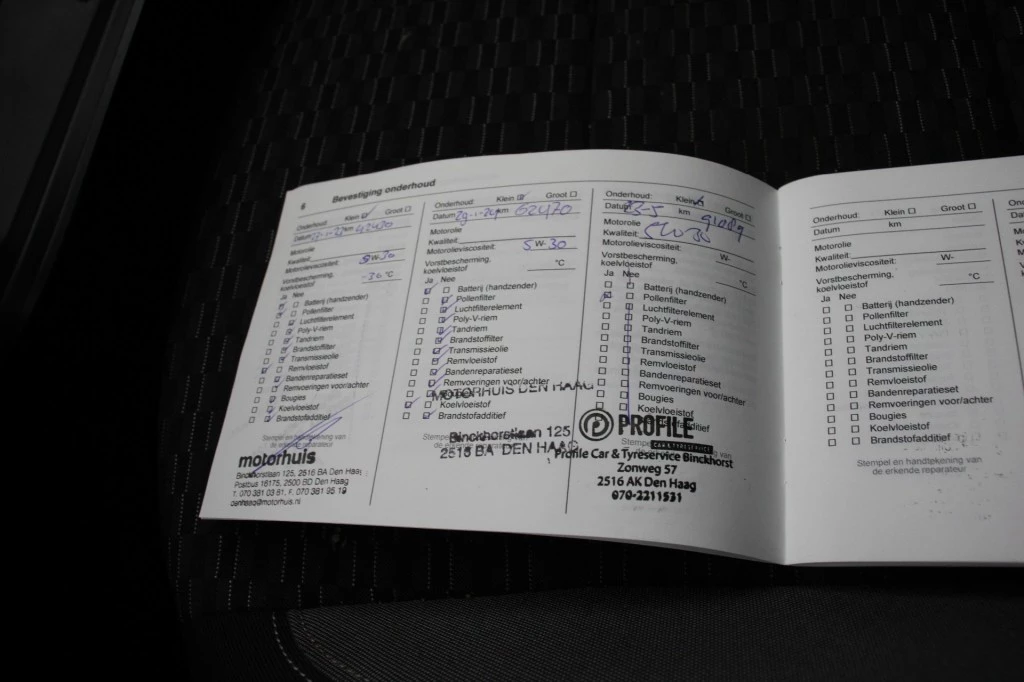 6 Bevestiging onderhoud
Onderhoud: Klein Groot
Datum km
Motorolie
Kwaliteit:
Motorolieviscositeit: 5 W-30
Vorstbescherming, koelvloeistof -36 °C
Ja Nee
Batterij (handzender)
Pollenfilter
Luchtfilterelement
Poly-V-riem
Tandriem
Brandstoffilter
Transmissieolie
Remvloeistof
Bandenreparatieset
Remvoeringen voor/achter
Bougies
Koelvloeistof
Brandstofadditief
Stempel en handtekening van
de erkende reparateur
motorhuis
Binckhorstlaan 125, 2516 BA Den Haag
Postbus 16175, 2500 BD Den Haag
T. 070 381 03 81, F. 070 381 95 19
denhaag@motorhuis.nl
Onderhoud: Klein Groot
Datum km 62470
Motorolie
Kwaliteit:
Motorolieviscositeit: 5 W-30
Vorstbescherming,
koelvloeistof °C
Ja Nee
Batterij (handzender)
Pollenfilter
Luchtfilterelement
Poly-V-riem
Tandriem
Brandstoffilter
Transmissieolie
Remvloeistof
Bandenreparatieset
Remvoeringen voor/achter
Koelvloeistof
Brandstofadditief
MOTORHUIS DEN HAAG
Binckhorstlaan 125
2516 BA DEN HAAG
Onderhoud: Klein Groot
Datum 23-5 km
Motorolie
Kwaliteit: 5W30
Motorolieviscositeit: W-
Vorstbescherming,
koelvloeistof °C
Ja Nee
Batterij (handzender)
Pollenfilter
Luchtfilterelement
Poly-V-riem
Tandriem
Brandstoffilter
Transmissieolie
Remvloeistof
Bandenreparatieset
Remvoeringen voor/achter
Bougies
Koelvloeistof
Brandstofadditief
PROFILE
CAR & TYRESERVICE
Profile Car & Tyreservice Binckhorst
Zonweg 57
2516 AK Den Haag
070-2211531
Onderhoud: Klein Groot
Datum km
Motorolie
Kwaliteit:
Motorolieviscositeit: W-
Vorstbescherming,
koelvloeistof °C
Ja Nee
Batterij (handzender)
Pollenfilter
Luchtfilterelement
Poly-V-riem
Tandriem
Brandstoffilter
Transmissieolie
Remvloeistof
Bandenreparatieset
Remvoeringen voor/achter
Bougies
Koelvloeistof
Brandstofadditief
Stempel en handtekening van
de erkende reparateur